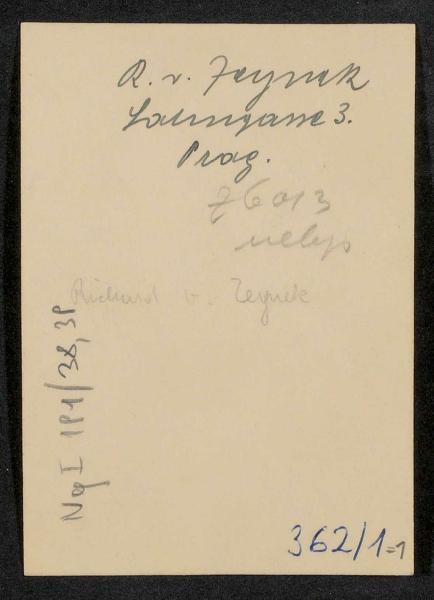 R. v. Zeynek
Salmgasse 3.
Prag.
76013
Richard v. Zeynek
Ng I 1P1/38,3P
362/1=1